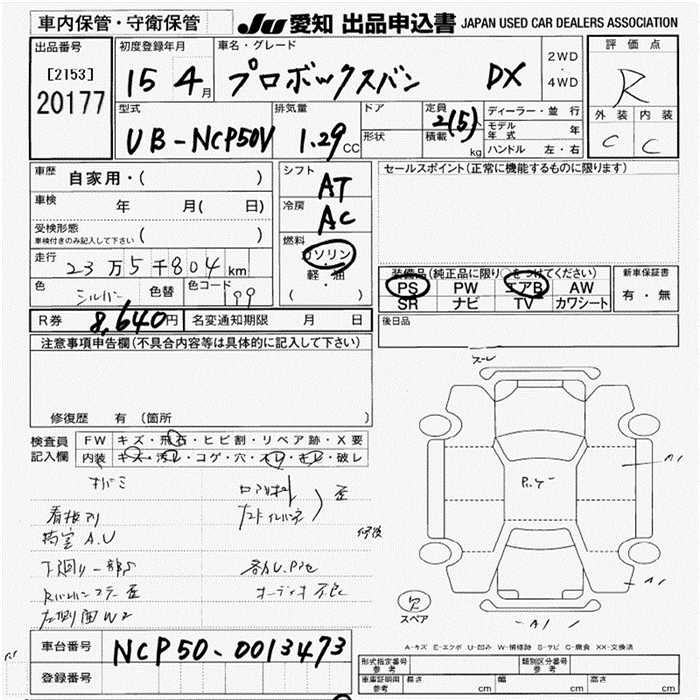 車内保管・守衛保管
JU 愛知 出品申込書 JAPAN USED CAR DEALERS ASSOCIATION
出品番号
[2153]
20177
初度登録年月
15 4月
車名・グレード
プロボックスバン DX
2WD
・
4WD
評価点
R
外装 内装
C C
型式
UB-NCP50V
排気量
1.29cc
ドア
形状
定員
積載
2(5)
kg
ディーラー・並行
モデル年式 年
ハンドル 左・右
車歴
自家用・( )
車検 年 月( 日)
受検形態
車検付きのみ記入して下さい ( )
走行
23万5千804km
色
シルバー
色替
色コード
199
シフト
AT
冷房
AC
燃料
ガソリン
軽・油
( )
セールスポイント(正常に機能するものに限ります)
装備品(純正品に限り○をつけてください)
PS PW エアB AW
SR ナビ TV カワシート
新車保証書
有・無
R券 8,640円 名変通知期限 月 日
後日品
注意事項申告欄(不具合内容等は具体的に記入して下さい)
修復歴 有(箇所 )
検査員
記入欄
FW キズ・飛石・ヒビ割・リペア跡・X要
内装 キズ・汚レ・コゲ・穴・スレ・キレ・破レ
看板アリ
A.U
下廻り一部S
オーディオ不良
左側面W2
スレ
A1
A1
A1
スペア
欠
A-キズ E-エクボ U-凹み W-補修跡 S-サビ C-腐食 XX-交換済
車台番号
NCP50-0013473
登録番号
形式指定番号
参考
類別区分番号
参考
車庫証明用
参考
長さ cm 幅 cm 高さ cm